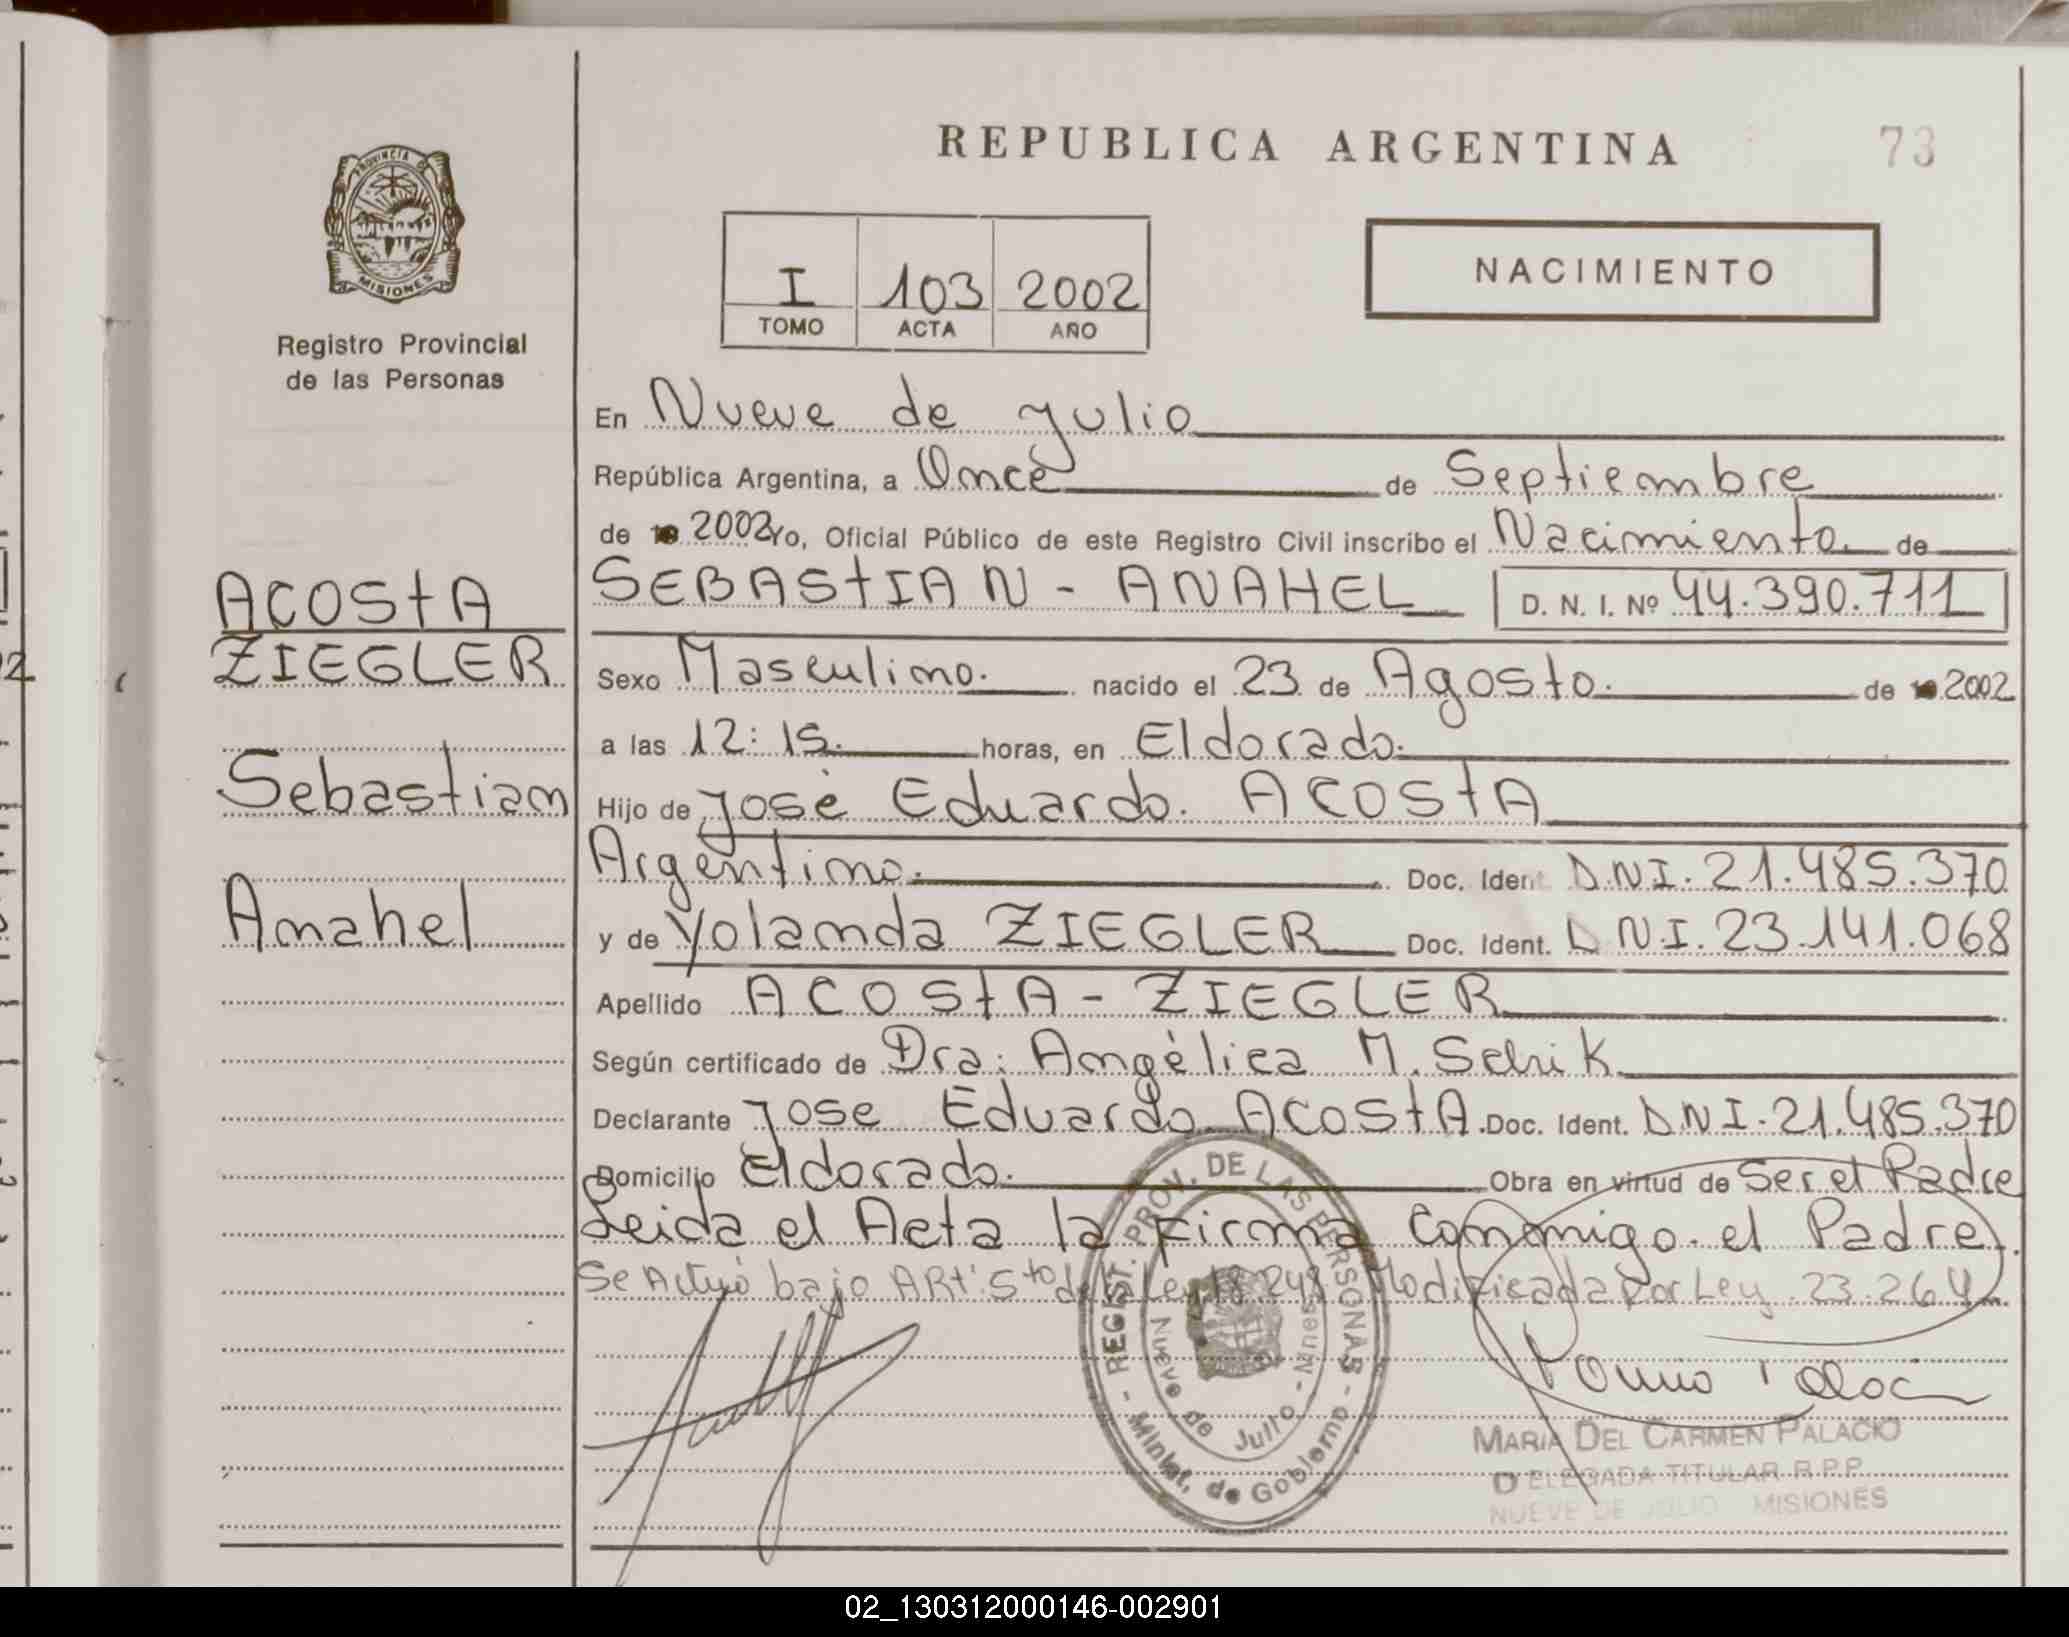 REPUBLICA ARGENTINA
73
PROVINCIA DE
MISIONES
Registro Provincial
de las Personas
I 103 2002
TOMO ACTA AÑO
NACIMIENTO
En Nueve de julio
República Argentina, a Once de Septiembre
de 19 2002 Yo, Oficial Público de este Registro Civil inscribo el Nacimiento de
SEBASTIAN - ANAHEL D. N. I. Nº 44.390.711
ACOSTA
ZIEGLER
Sebastian
Anahel
Sexo Masculino. nacido el 23 de Agosto. de 19 2002
a las 12:15. horas, en Eldorado.
Hijo de José Eduardo. ACOSTA
Argentino. Doc. Ident DNI. 21.485.370
y de Yolanda ZIEGLER Doc. Ident. DNI. 23.141.068
Apellido ACOSTA - ZIEGLER
Según certificado de Dra: Angélica M. Schik
Declarante Jose Eduardo ACOSTA. Doc. Ident. DNI. 21.485.370
Domicilio Eldorado. Obra en virtud de Ser el Padre
Leida el Acta la Firma Conmigo. el Padre.
Se Actuó bajo ARt. 5to de la Ley 18.248 Modificada por Ley 23.264
REGIST. PROV. DE LAS PERSONAS
Nueve de Julio - Mnes
Minist. de Gobierno
MARIA DEL CARMEN PALACIO
DELEGADA TITULAR R.P.P.
NUEVE DE JULIO MISIONES
02_130312000146-002901